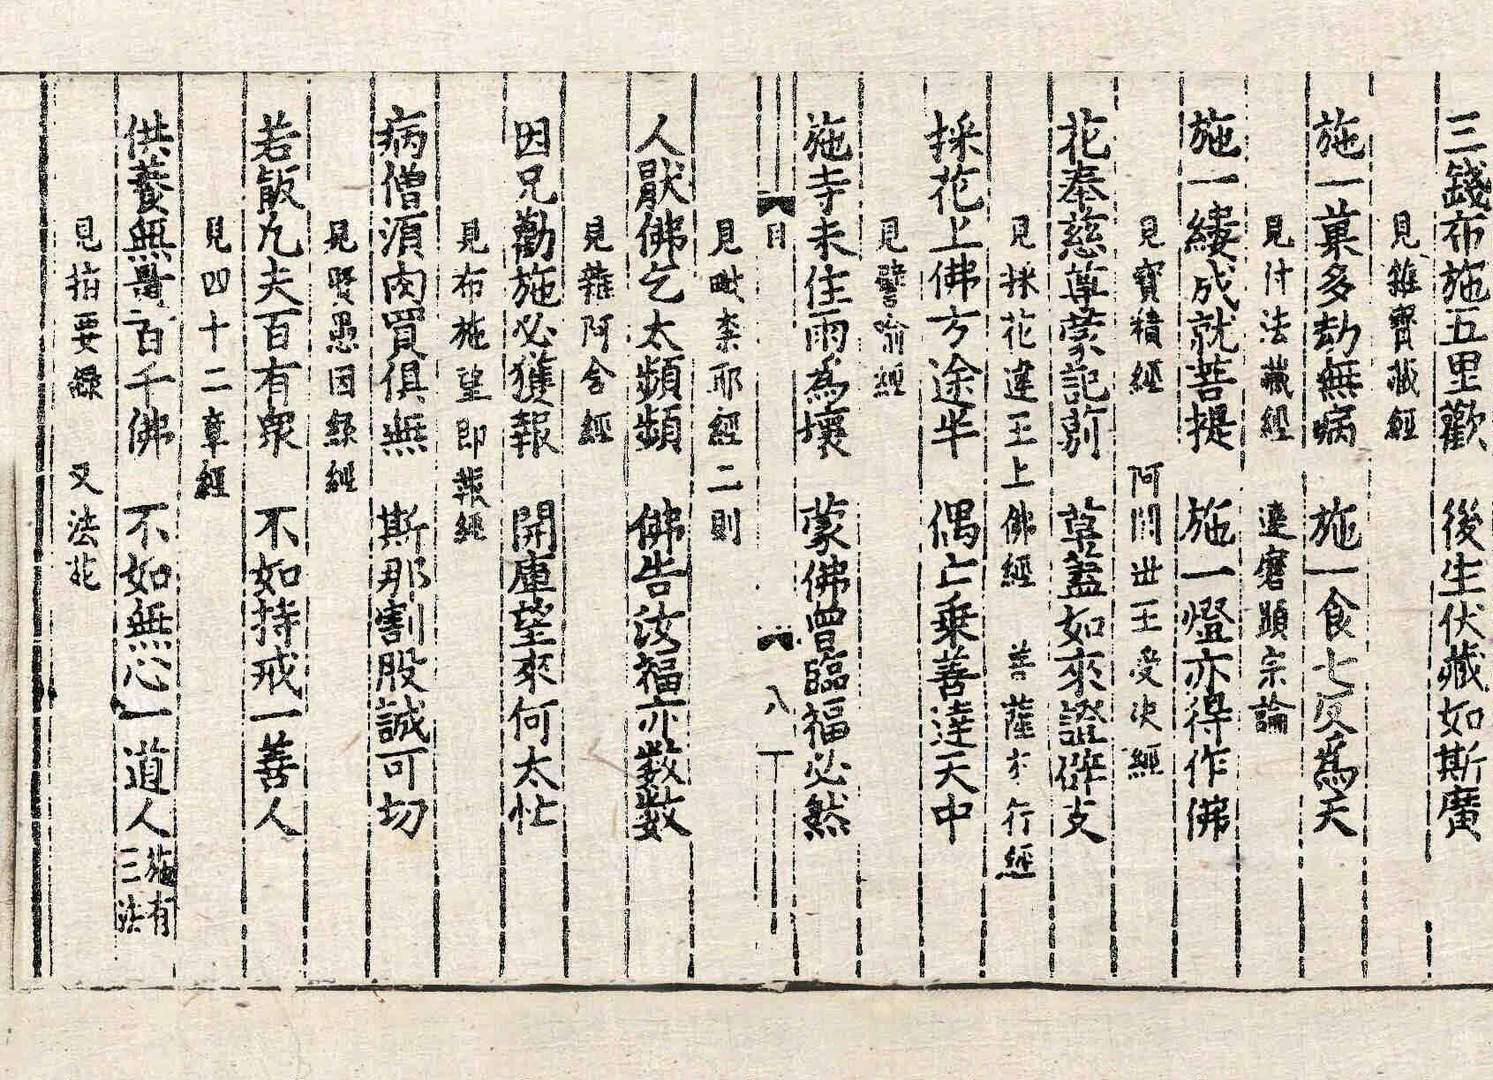 三錢布施五里歡　後生伏藏如斯廣
見雜寶藏經
施一菓多劫無病　施一食七返為天
見付法藏經　達磨顯宗論
施一縷成就菩提　施一燈亦得作佛
見寶積經　阿闍世王受決經
花奉慈尊蒙記莂　草蓋如來證辟支
見採花違王上佛經　菩薩本行經
採花上佛方途半　偶亡乗善達天中
見譬喻經
施寺未住雨為壞　蒙佛曾臨福必然
目　八
見毗柰耶經二則
人厭佛乞太頻頻　佛告汝福亦数数
見雜阿含經
因兄勸施必獲報　開庫望來何太忙
見布施望即報經
病僧湏肉買俱無　斯那割股誠可切
見賢愚因緣經
若飯凢夫百有衆　不如持戒一善人
見四十二章經
供養無量百千佛　不如無心一道人 施有三法
見指要錄　又法苑